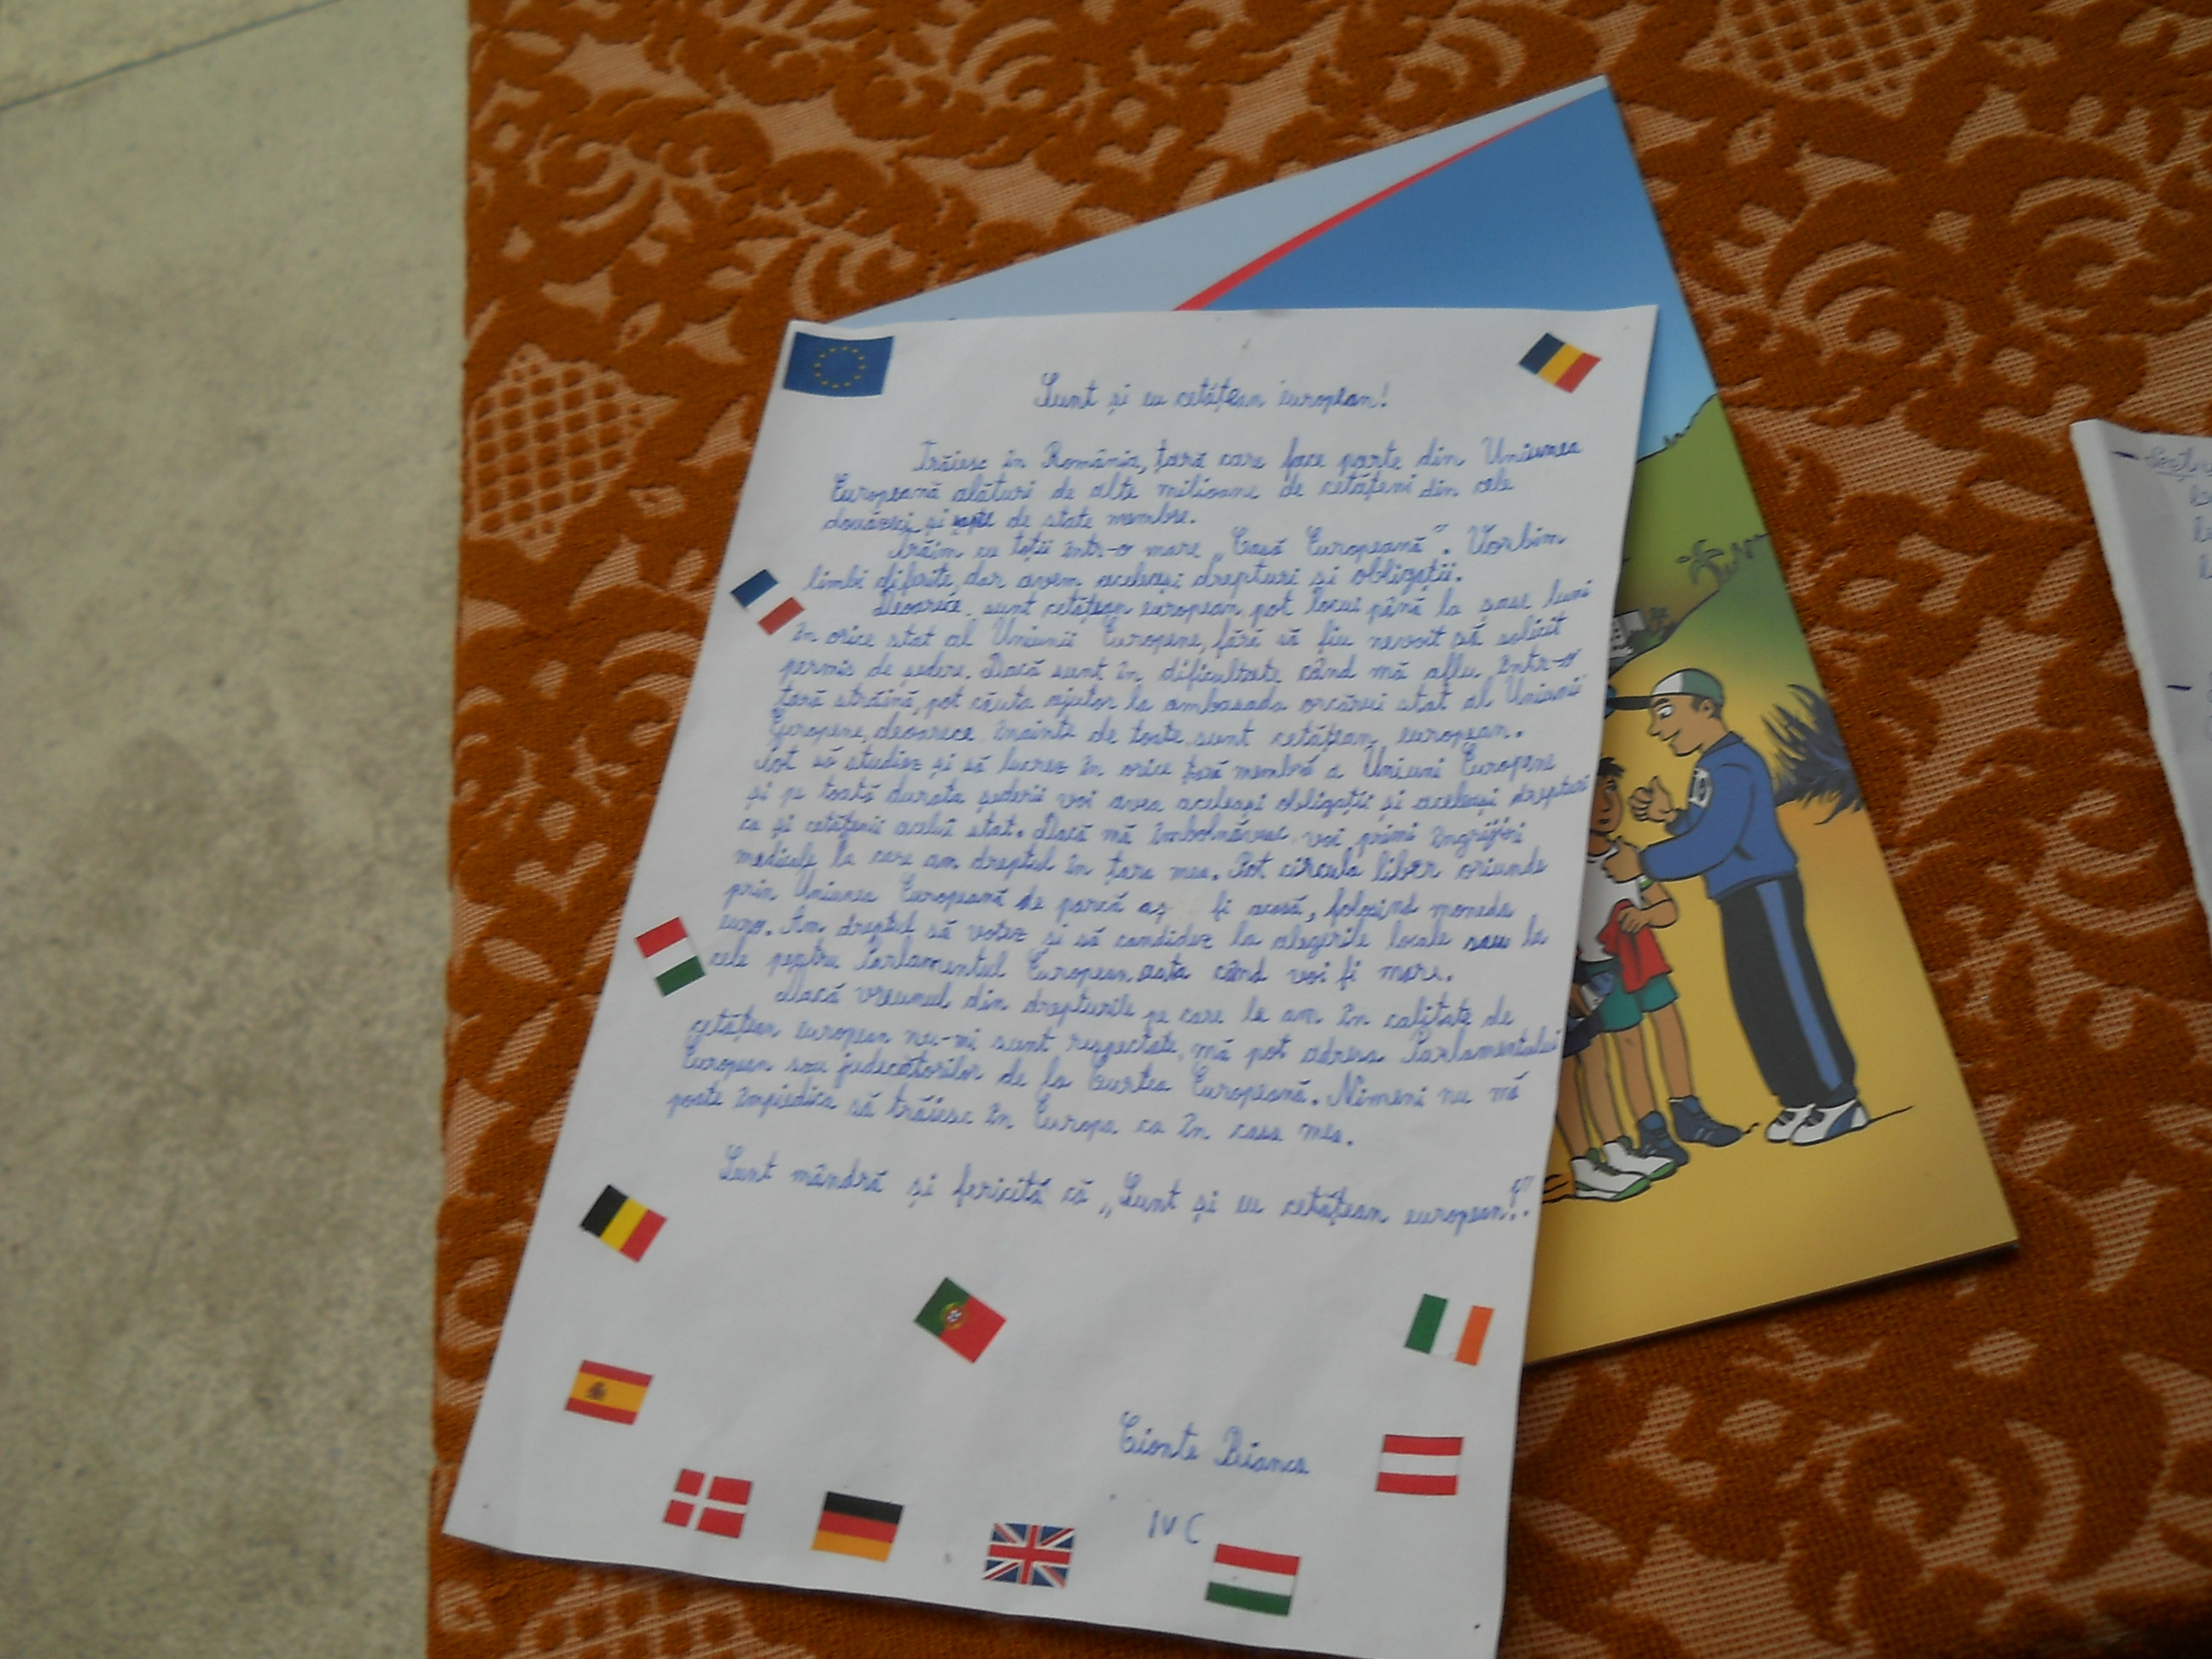 Sunt și eu cetățean european!
Trăiesc în România, țară care face parte din Uniunea
Europeană alături de alte milioane de cetățeni din cele
douăzeci și șapte de state membre.
Trăim cu toții într-o mare „Casă Europeană”. Vorbim
limbi diferite, dar avem aceleași drepturi și obligații.
Deoarece sunt cetățean european pot locui până la șase luni
în orice stat al Uniunii Europene, fără să fiu nevoit să solicit
permis de ședere. Dacă sunt în dificultate când mă aflu într-o
țară străină, pot căuta ajutor la ambasada orcărui stat al Uniunii
Europene, deoarece înainte de toate sunt cetățean european.
Pot să studiez și să lucrez în orice țară membră a Uniuni Europene
și pe toată durata șederii voi avea aceleași obligații și aceleași drepturi
ca și cetățenii acelui stat. Dacă mă îmbolnăvesc voi primi îngrijiri
medicale la care am dreptul în țara mea. Pot circula liber oriunde
prin Uniunea Europeană de parcă aș fi acasă, folosind moneda
euro. Am dreptul să votez și să candidez la alegerile locale sau la
cele pentru Parlamentul European asta când voi fi mare.
Dacă vreunul din drepturile pe care le am în calitate de
cetățean european nu-mi sunt respectate, mă pot adresa Parlamentului
European sau judecătorilor de la Curtea Europeană. Nimeni nu mă
poate împiedica să trăiesc în Europa ca în casa mea.
Sunt mândră și fericită că „Sunt și eu cetățean european!”.
Cionte Bianca
IV C